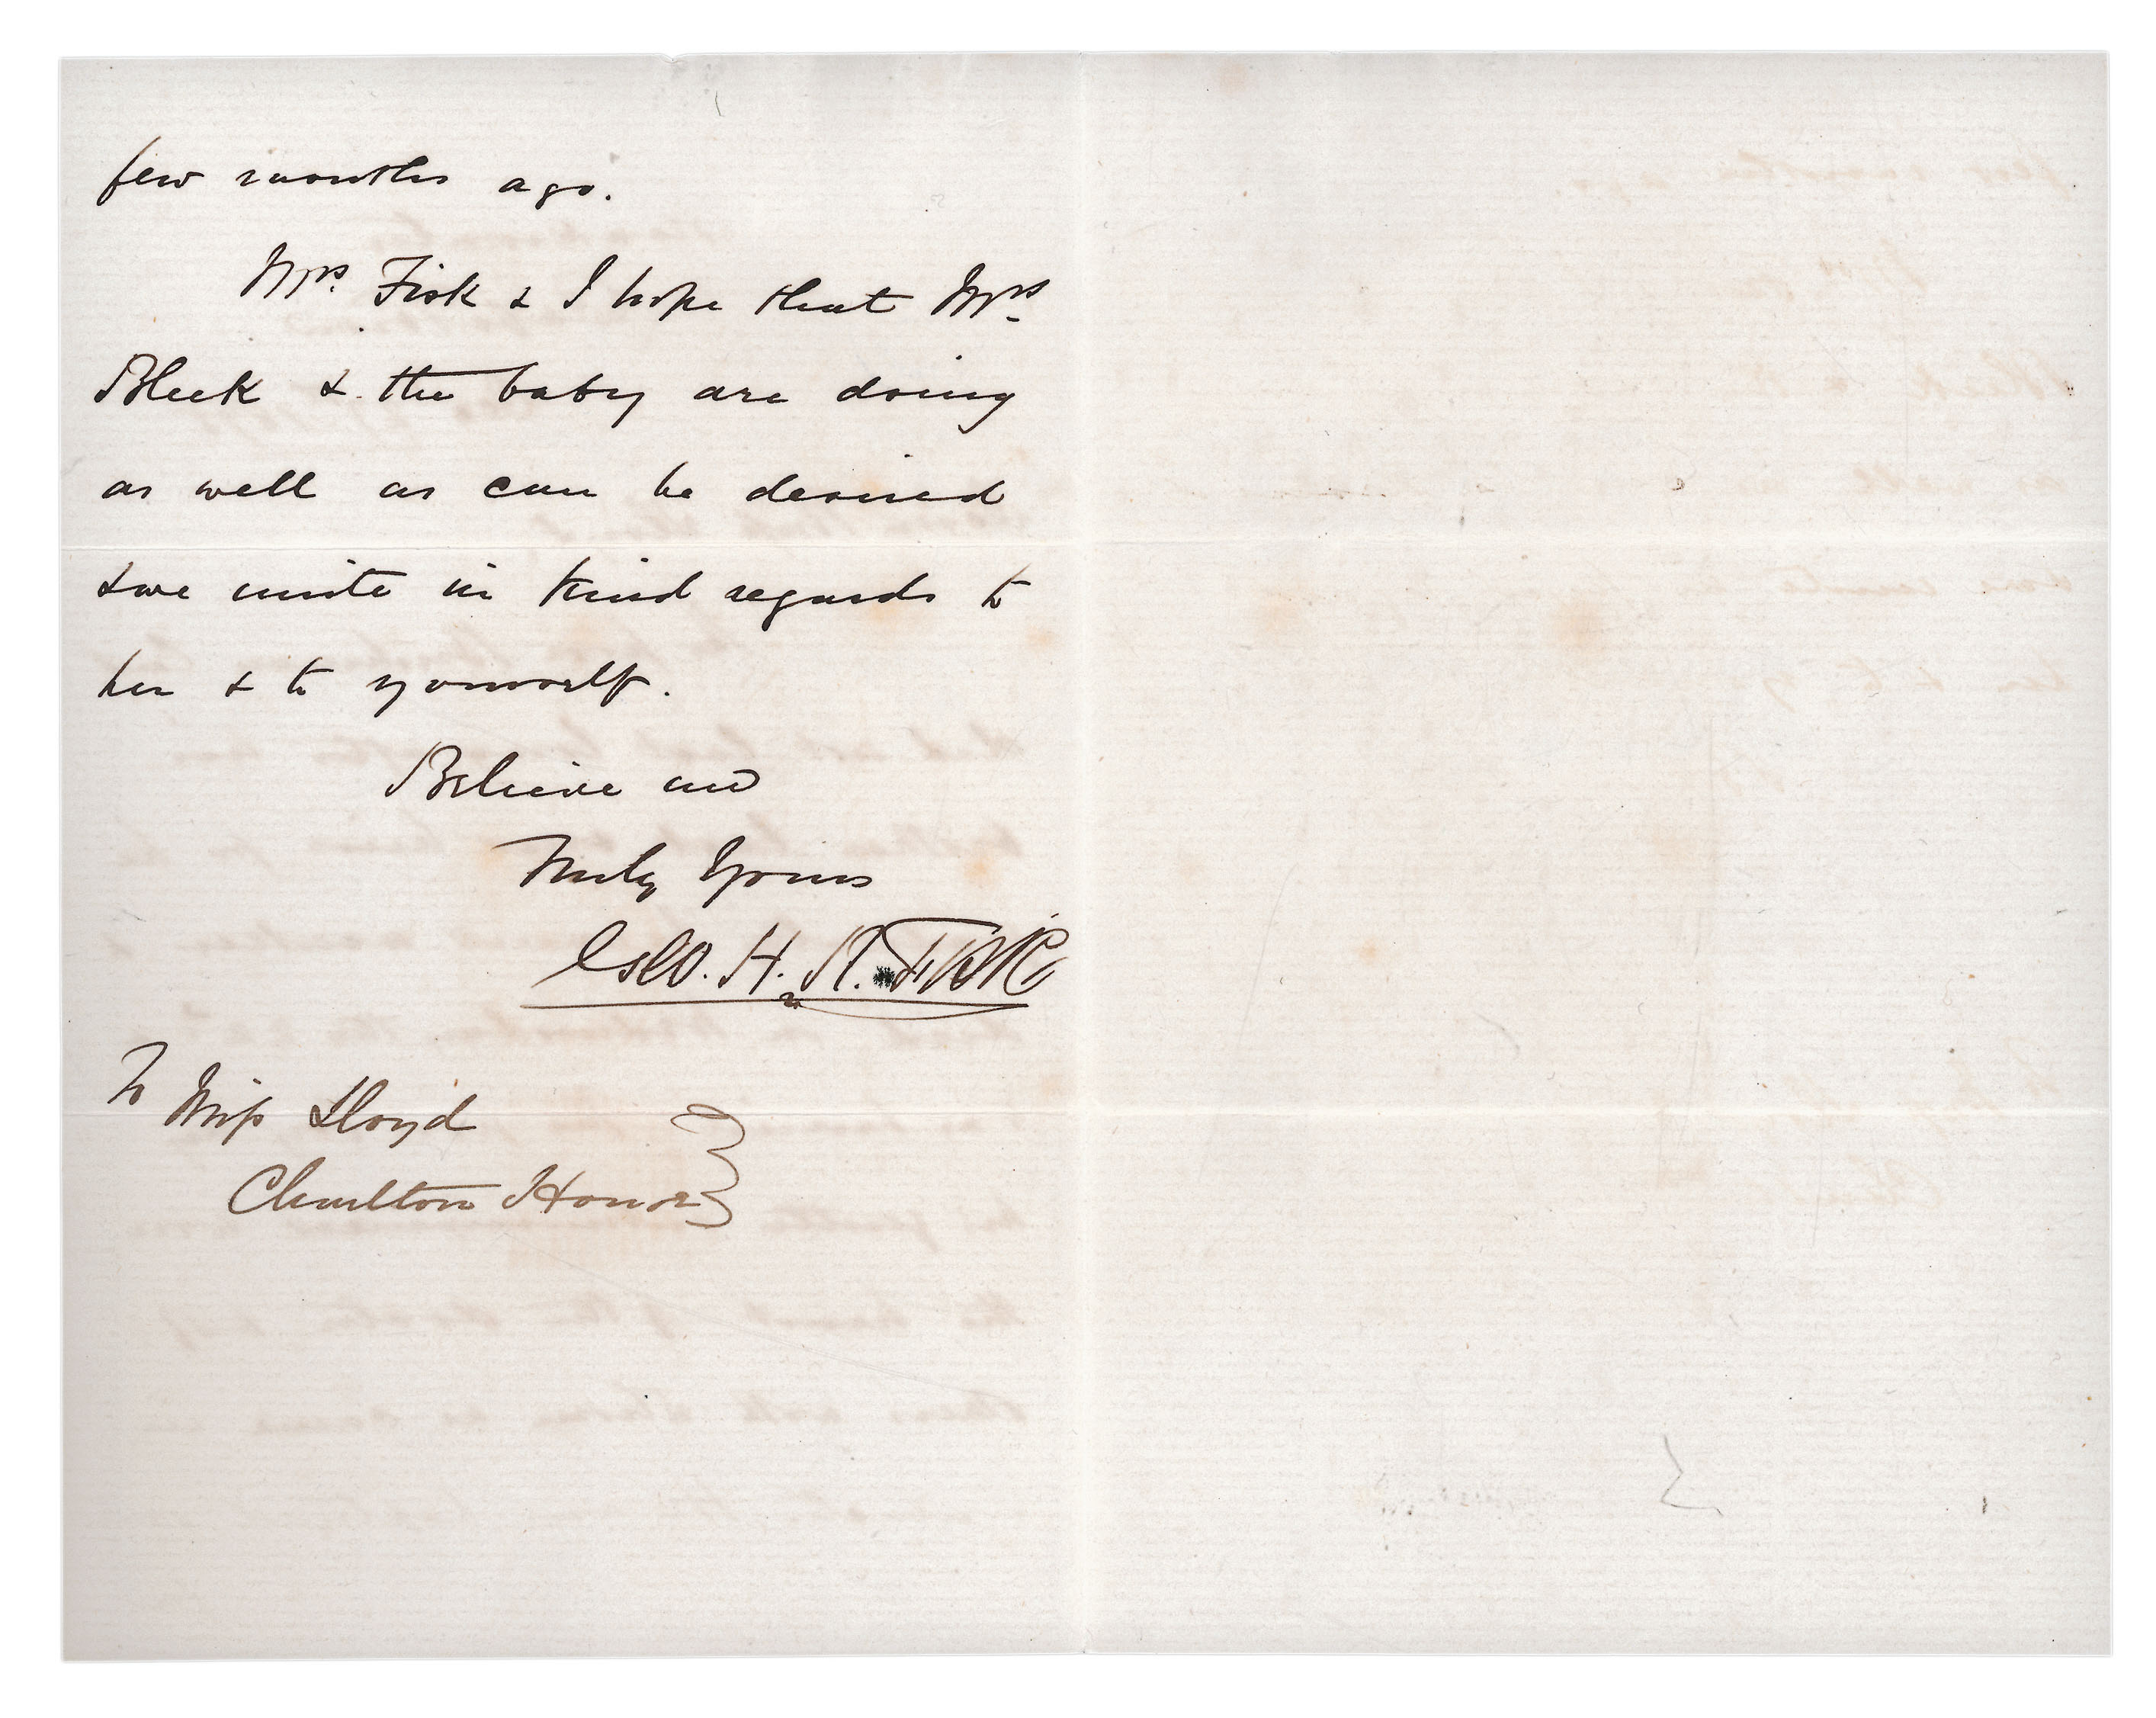 few months ago.
Mrs. Fisk & I hope that Mrs.
Bleek & the baby are doing
as well as can be desired
& we unite in kind regards to
her & to yourself.
Believe me
Truly Yours
Geo. H. R. Fisk
To Miss Lloyd
Charlton House